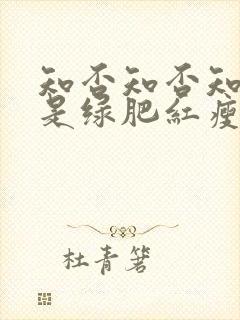 知否知否知
是绿肥红瘦
杜青箬